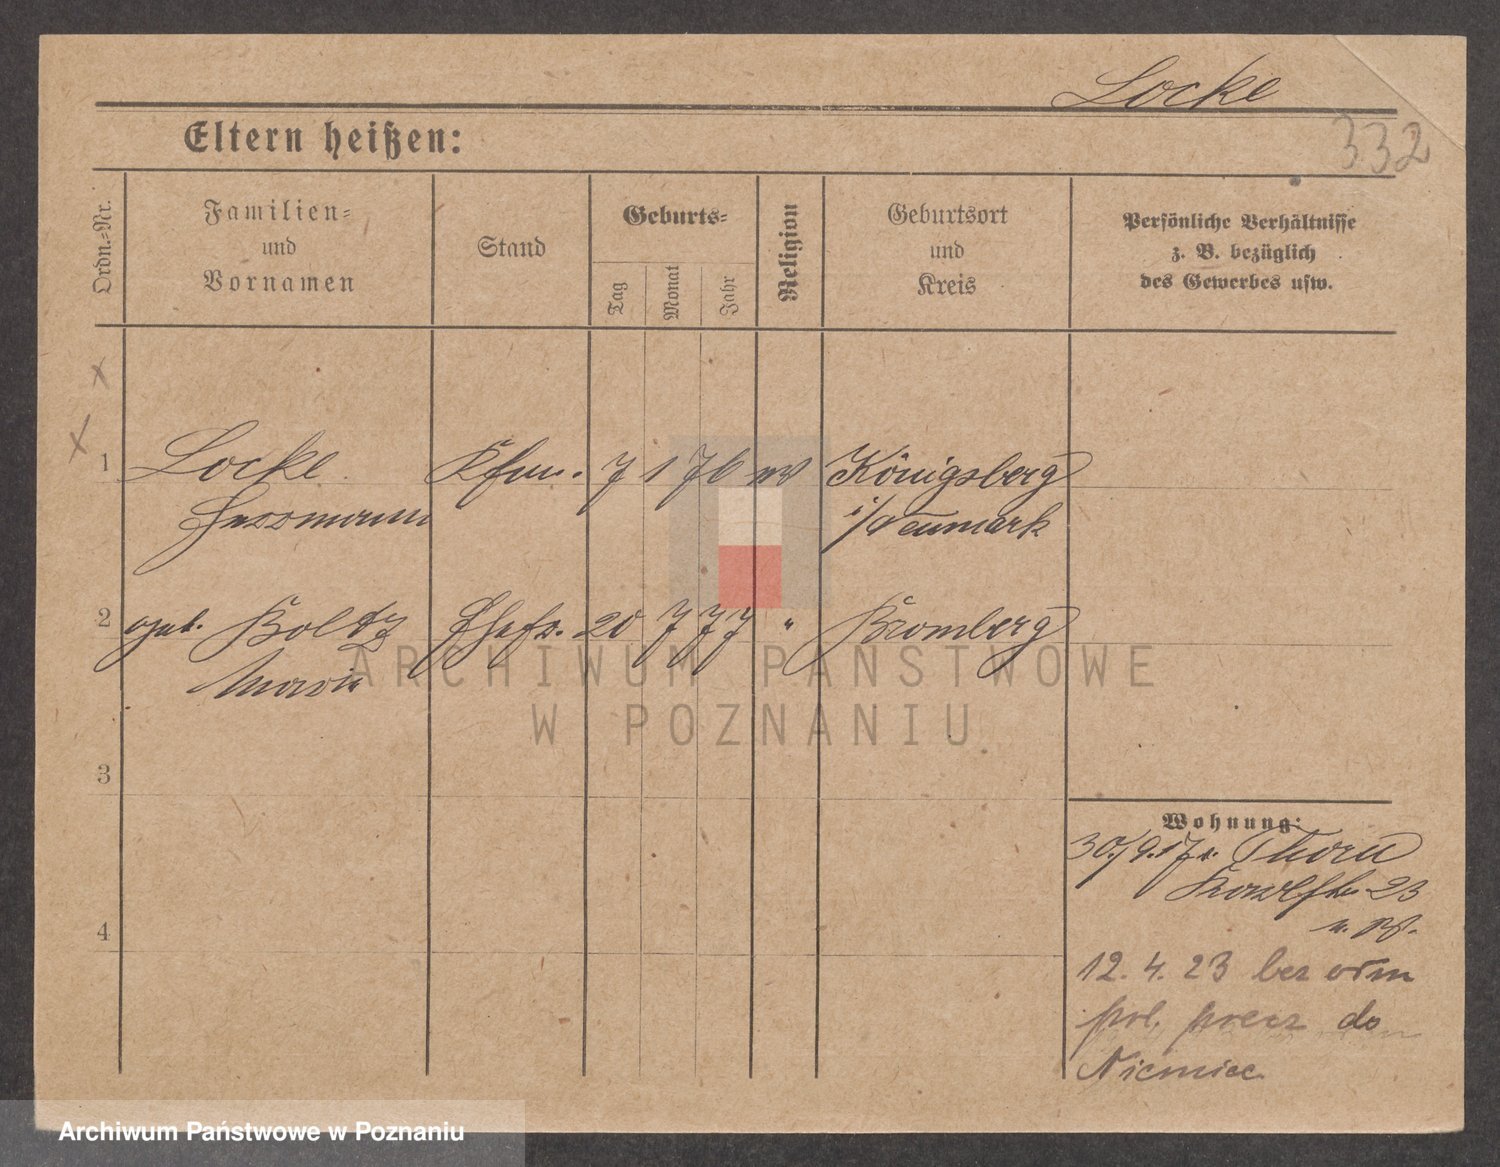 Locke
332
Eltern heißen:
Ordn.=Nr.
Familien=
und
Vornamen
Stand
Geburts=
Tag
Monat
Jahr
Religion
Geburtsort
und
Kreis
Persönliche Verhältnisse
z. B. bezüglich
des Gewerbes usw.
x
x
1 Locke Kfm. 7 1 76 ev Königsberg
Herrmann i/Neumark
2 geb. Boltz Ehefr. 20 7 77 " Bromberg
Marie
3
4
Wohnung:
30/9.17 Thorn
23
12.4.23 bez
pol. precz do
Niemiec
ARCHIWUM PAŃSTWOWE
W POZNANIU
Archiwum Państwowe w Poznaniu